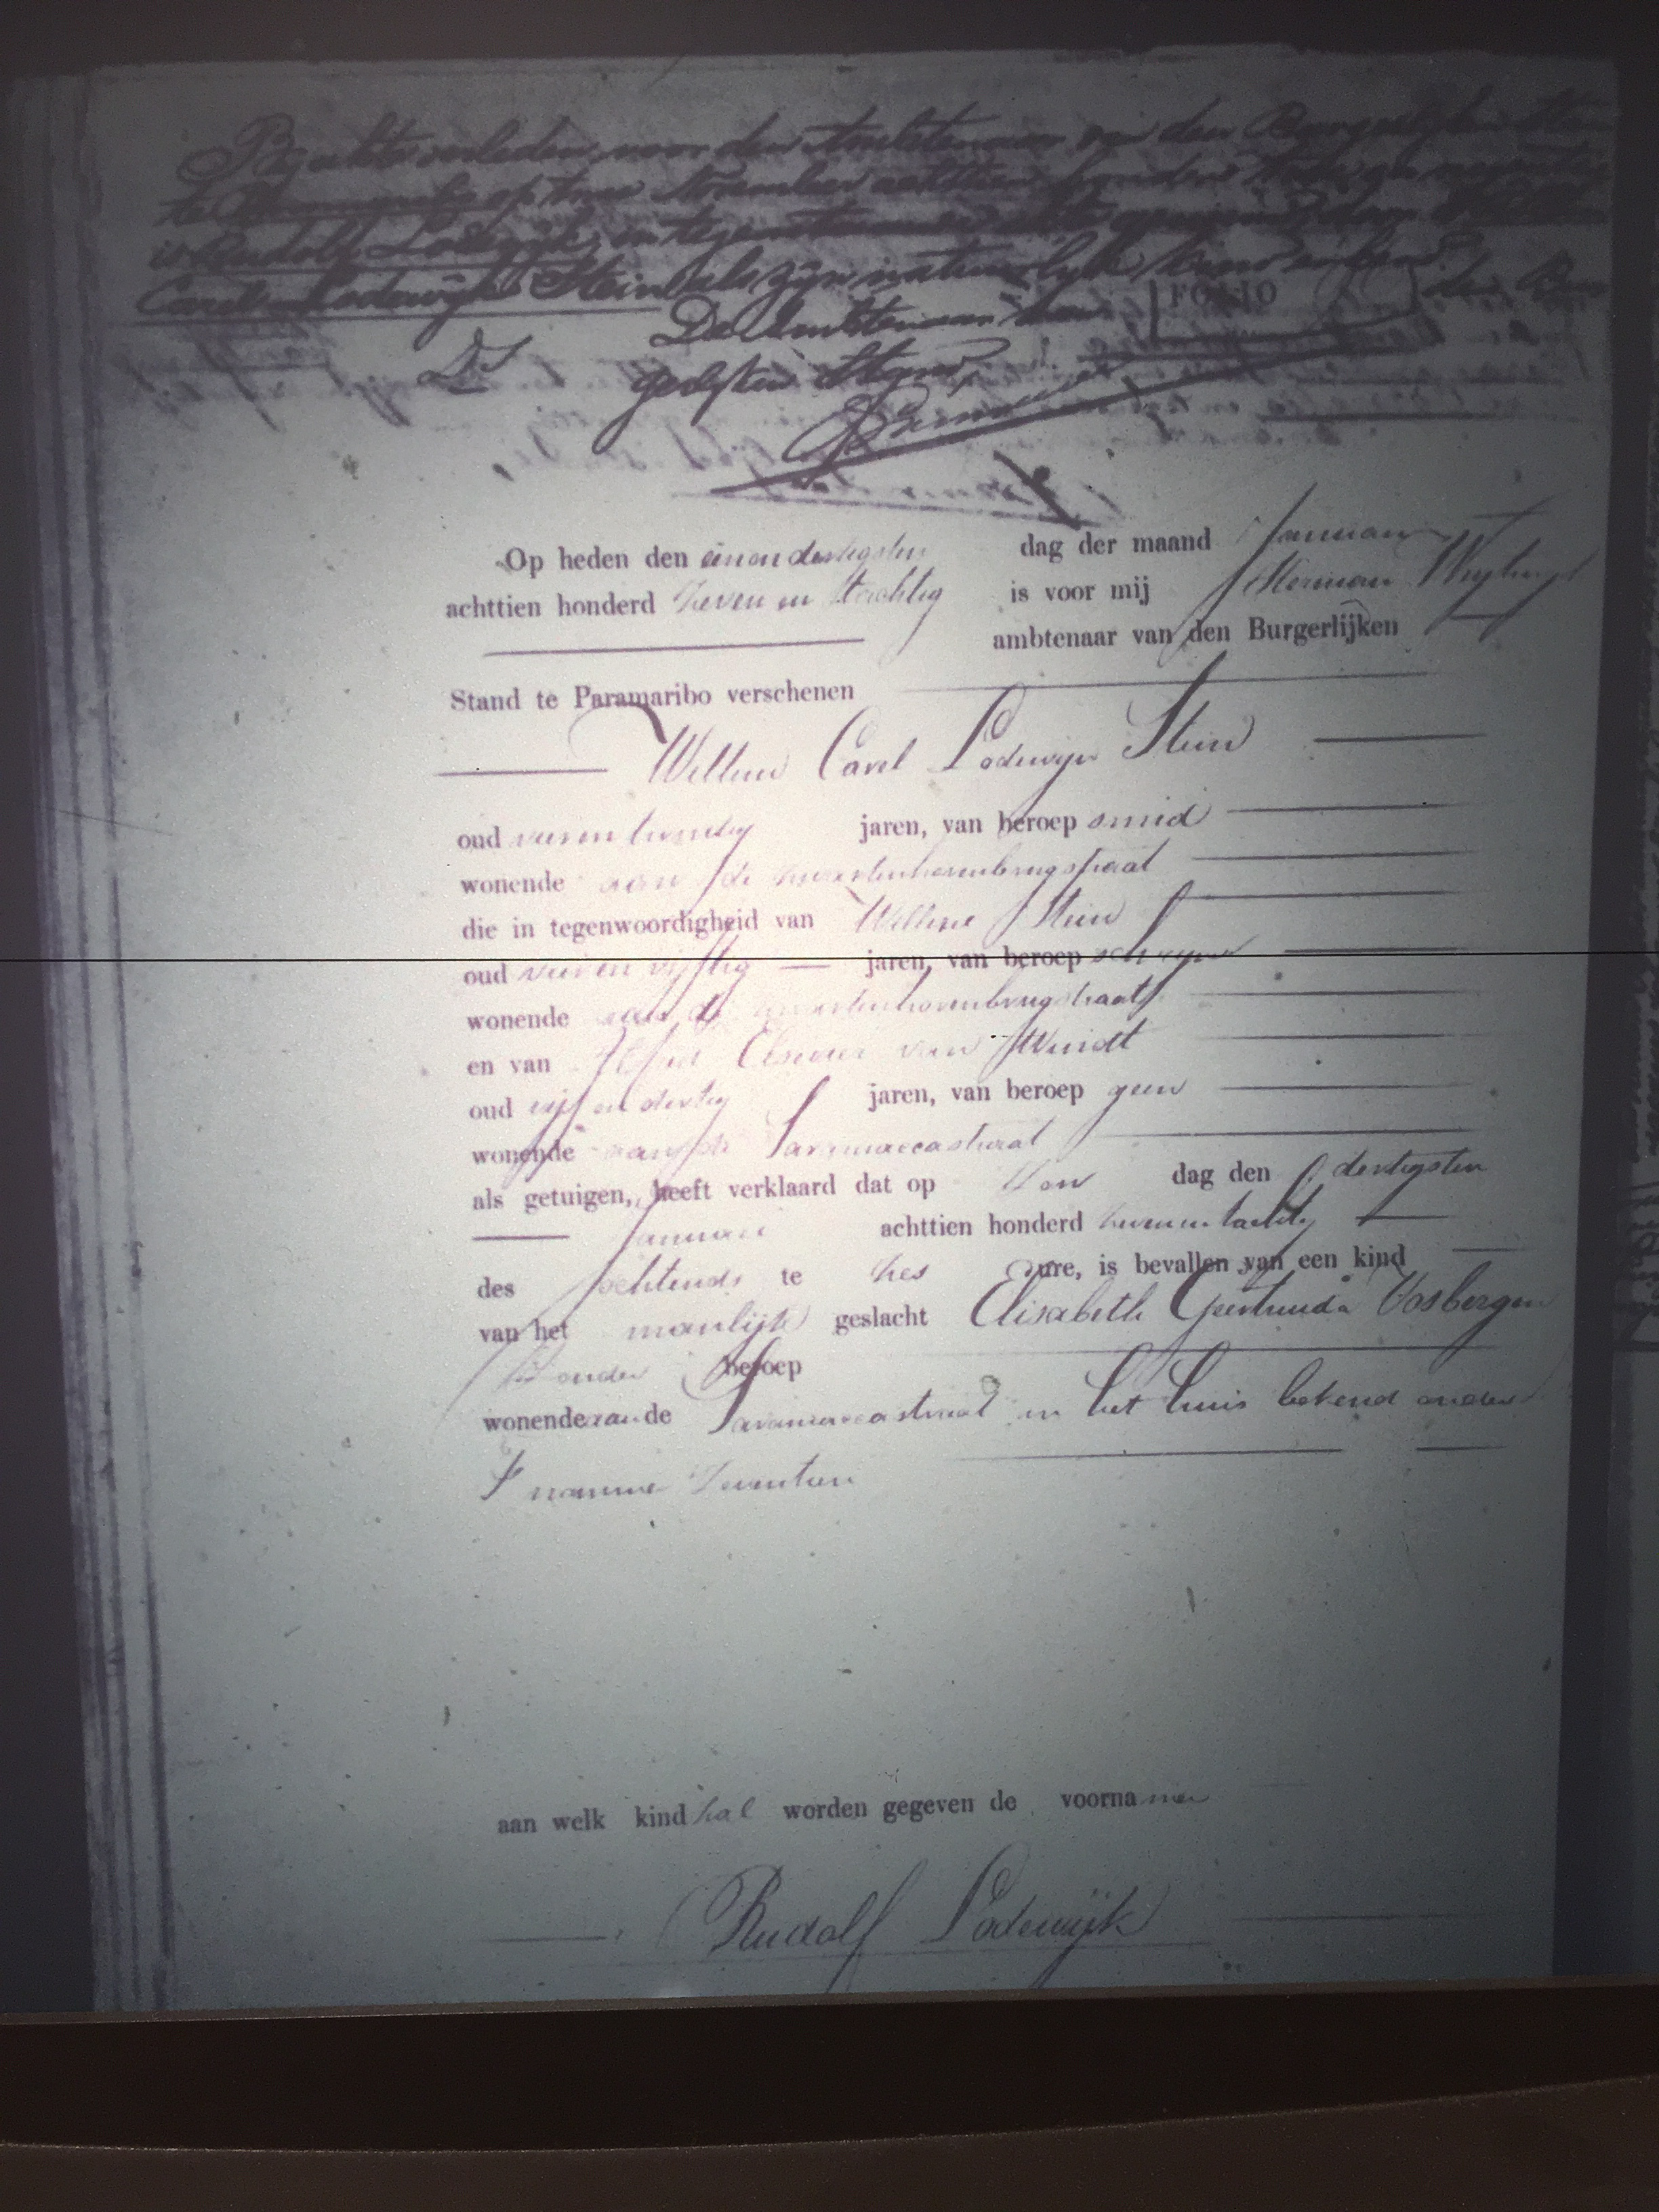 Bij akte verleden voor den Ambtenaar van den Burgerlijken
te Paramaribo op twee November achttien honderd
is Rudolf Lodewijk, in tegenstaande akte genoemd, door
Carel Lodewijk Stein als zijn natuurlijk kind erkend.
FOLIO
De Ambtenaar
Op heden den een en dertigsten dag der maand Januari
achttien honderd zeven en tachtig is voor mij Herman
ambtenaar van den Burgerlijken
Stand te Paramaribo verschenen
Willem Carel Lodewijk Stein
oud vier en twintig jaren, van beroep smid
wonende aan de zwartenhovenbrugstraat
die in tegenwoordigheid van Willem Stein
oud vijftig jaren, van beroep
wonende aan de zwartenhovenbrugstraat
en van van
oud vijf en dertig jaren, van beroep geen
wonende aan de Saramaccastraat
als getuigen, heeft verklaard dat op Zon dag den dertigsten
Januari achttien honderd zeven en tachtig
des ochtends te zes ure, is bevallen van een kind
van het manlijk geslacht Elisabeth Geertruida Vosbergen
Zonder beroep
wonende aan de Saramaccastraat in het huis bekend onder
aan welk kind zal worden gegeven de voornamen
Rudolf Lodewijk